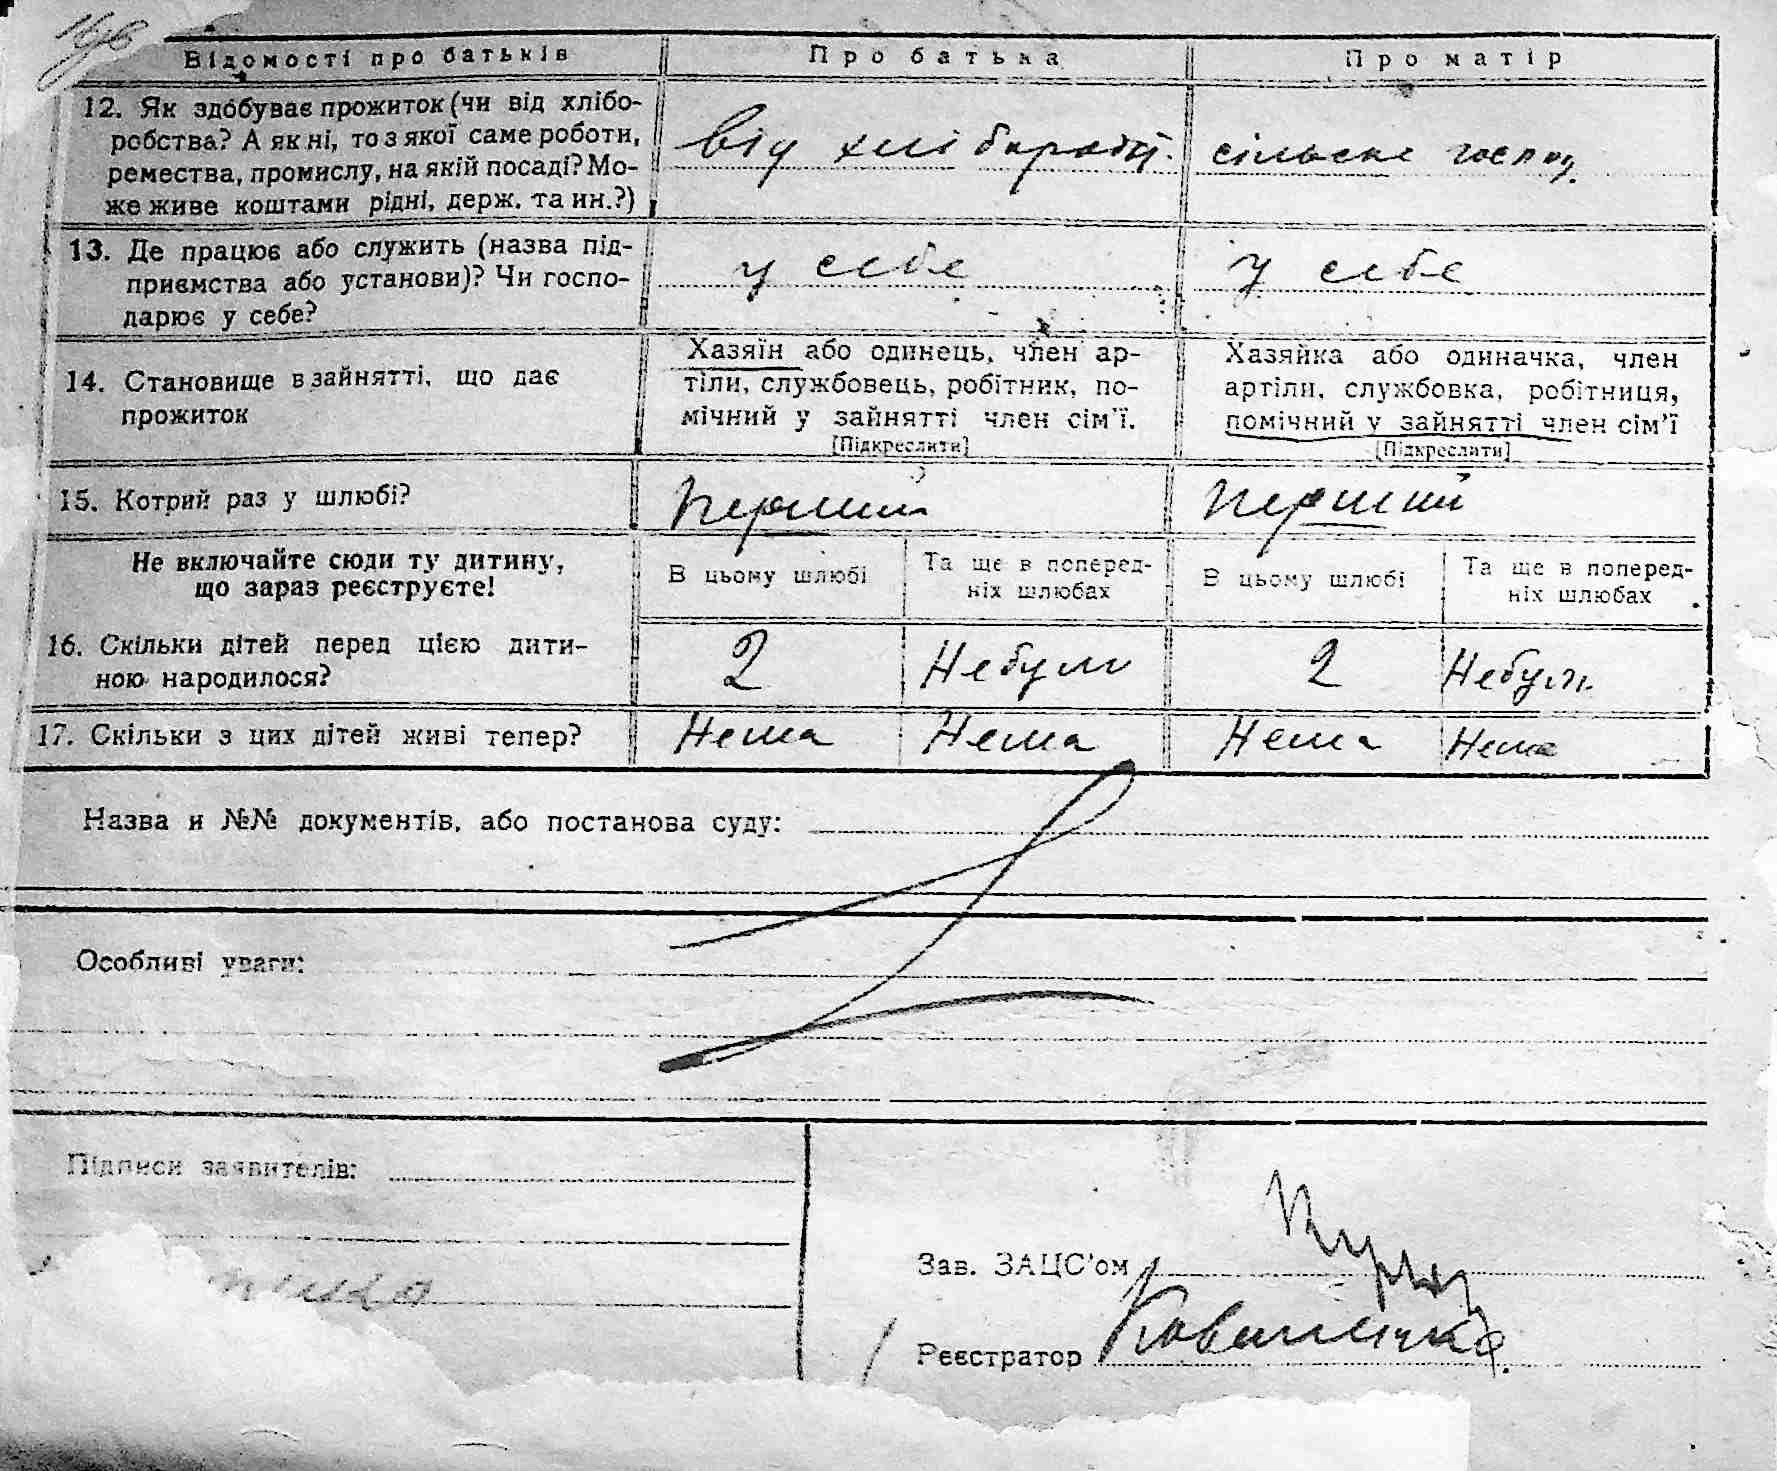 Відомості про батьків
Про батька
Про матір
12. Як здобуває прожиток (чи від хлібо-
робства? А як ні, то з якої саме роботи,
ремества, промислу, на якій посаді? Мо-
же живе коштами рідні, держ. та ин.?)
від
сільське господ.
13. Де працює або служить (назва під-
приємства або установи)? Чи госпо-
дарює у себе?
у себе
у себе
14. Становище в зайнятті, що дає
прожиток
Хазяїн або одинець, член ар-
тіли, службовець, робітник, по-
мічний у зайнятті член сім'ї.
[Підкреслити]
Хазяйка або одиначка, член
артіли, службовка, робітниця,
помічний у зайнятті член сім'ї
[Підкреслити]
15. Котрий раз у шлюбі?
Перший
Перший
Не включайте сюди ту дитину,
що зараз реєструєте!
В цьому шлюбі
Та ще в поперед-
ніх шлюбах
В цьому шлюбі
Та ще в поперед-
ніх шлюбах
16. Скільки дітей перед цією дити-
ною народилося?
2
Небули
2
Небули
17. Скільки з цих дітей живі тепер?
Нема
Нема
Нема
Нема
Назва и №№ документів, або постанова суду:
Особливі уваги:
Підписи заявителів:
Зав. ЗАЦС'ом
Реєстратор